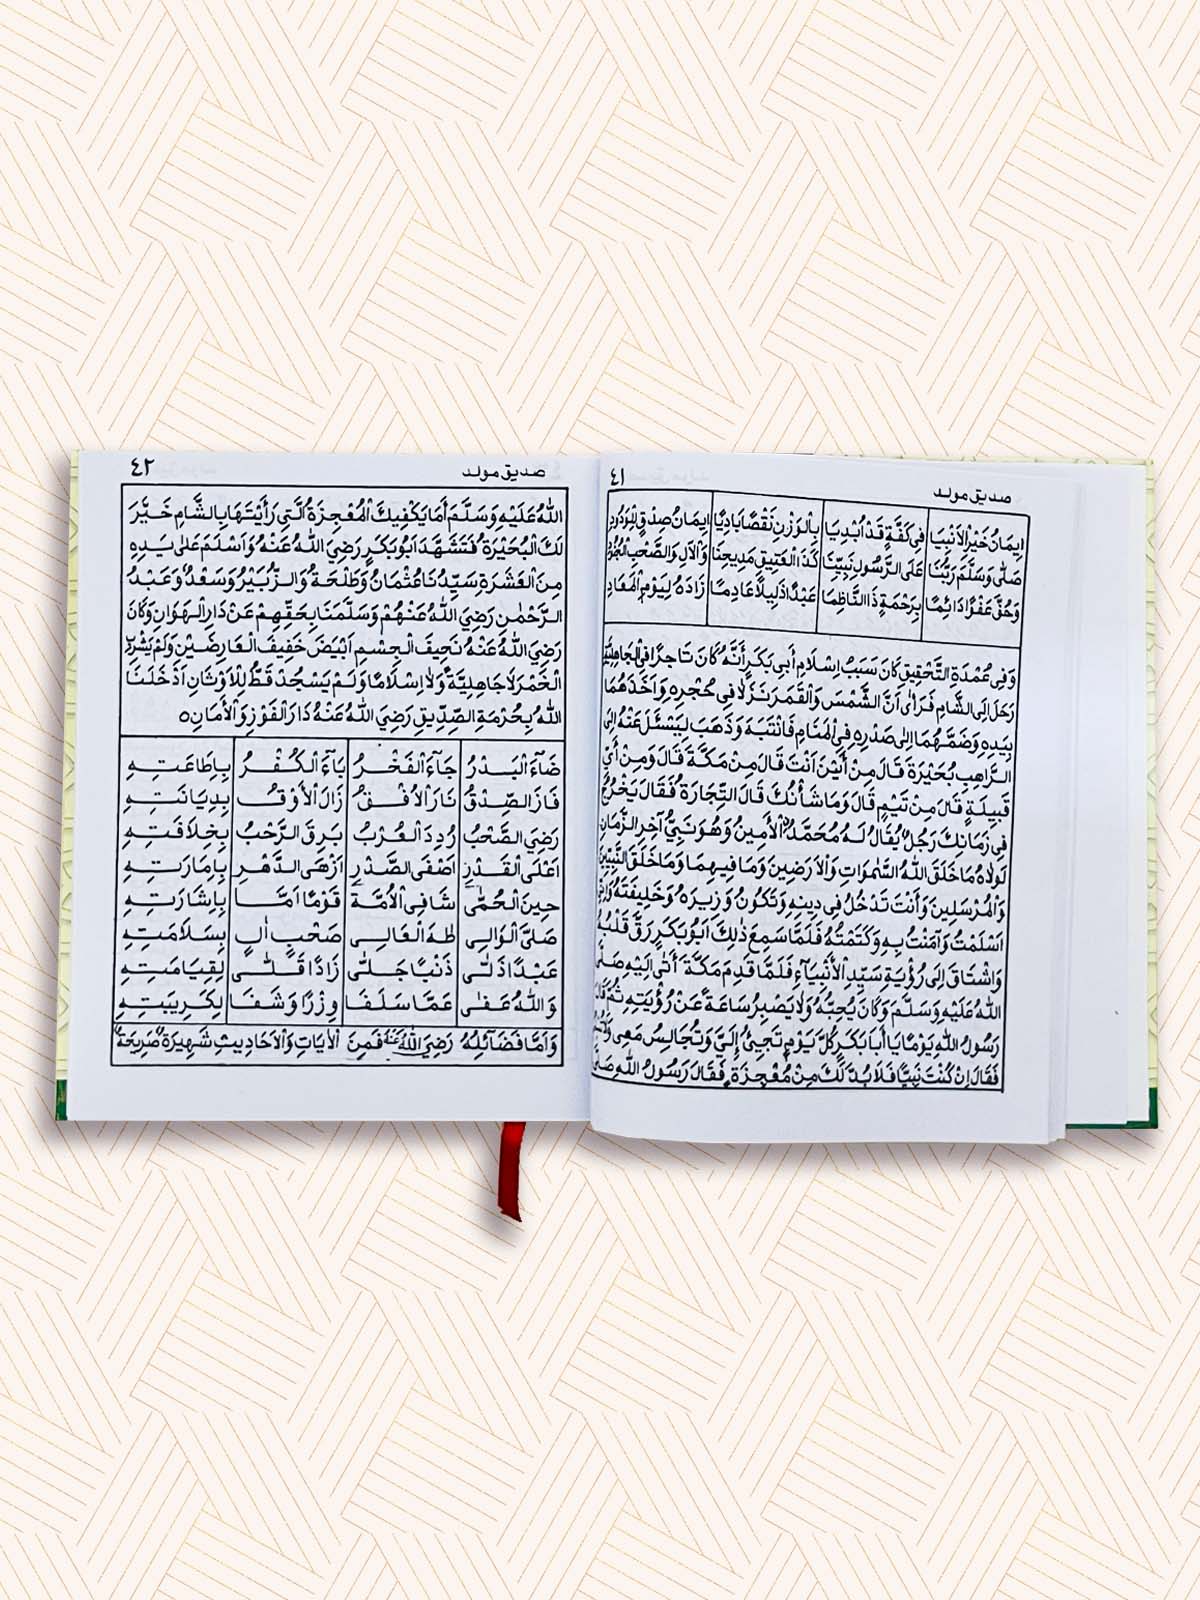 صديق مولد
٤١
اِيمَانُ خَيْرِ الْاَنْبِيَا فِي كَفَّةٍ قَدْ اُبْدِيَا بِالْوَزْنِ نَقْصًا بَادِيًا اِيمَانُ صِدْقٍ
صَلَّى وَسَلَّمَ رَبُّنَا عَلَى الرَّسُولِ نَبِيِّنَا كَذَا الْعَتِيقِ مَدِيحِنَا وَالْاٰلِ وَالصَّحْبِ
وَحُقَّ عَفْرًا دَائِمًا بِرَحْمَةٍ ذَا النَّاظِمَا عَبْدًا ذَلِيلًا عَادِمًا زَادَهُ لِيَوْمِ الْمَعَادِ
وَفِي عُمْدَةِ التَّحْقِيقِ كَانَ سَبَبُ اِسْلَامِ أَبِي بَكْرٍ أَنَّهُ كَانَ تَاجِرًا فِي الْجَاهِلِيَّةِ
رَحَلَ اِلَى الشَّامِ فَرَأَى أَنَّ الشَّمْسَ وَالْقَمَرَ نَزَلَا فِي حُجْرِهِ وَاَخَذَهُمَا
بِيَدِهِ وَضَمَّهُمَا اِلَى صَدْرِهِ فِي الْمَنَامِ فَانْتَبَهَ وَذَهَبَ لِيَسْئَلَ عَنْهُ اِلَى
الرَّاهِبِ بُحَيْرَةَ قَالَ مِنْ أَيْنَ اَنْتَ قَالَ مِنْ مَكَّةَ قَالَ وَمِنْ أَيِّ
قَبِيلَةٍ قَالَ مِنْ تَيْمٍ قَالَ وَمَا شَأْنُكَ قَالَ التِّجَارَةُ فَقَالَ يَخْرُجُ
فِي زَمَانِكَ رَجُلٌ يُقَالُ لَهُ مُحَمَّدُ الْأَمِينُ وَهُوَ نَبِيُّ آخِرِ الزَّمَانِ
لَوْلَاهُ مَا خَلَقَ اللهُ السَّمٰوَاتِ وَالْاَرَضِينَ وَمَا فِيهِمَا وَمَا خَلَقَ النَّبِيِّينَ
وَالْمُرْسَلِينَ وَأَنْتَ تَدْخُلُ فِي دِينِهِ وَتَكُونُ وَزِيرَهُ وَخَلِيفَتَهُ
اَسْلَمْتُ وَآمَنْتُ بِهِ وَكَتَمْتُهُ فَلَمَّا سَمِعَ ذٰلِكَ اَبُو بَكْرٍ رَقَّ قَلْبُهُ
وَاشْتَاقَ اِلَى رُؤْيَةِ سَيِّدِ الْأَنْبِيَاءِ فَلَمَّا قَدِمَ مَكَّةَ أَتَى اِلَيْهِ صَلَّى
اللهُ عَلَيْهِ وَسَلَّمَ وَكَانَ يُحِبُّهُ وَلَا يَصْبِرُ سَاعَةً عَنْ رُؤْيَتِهِ ثُمَّ قَالَ
رَسُولُ اللهِ يَوْمًا يَا أَبَا بَكْرٍ كُلَّ يَوْمٍ تَجِيئُ اِلَيَّ وَتُجَالِسُ مَعِي
فَقَالَ اِنْ كُنْتَ نَبِيًّا فَلَا بُدَّ لَكَ مِنْ مُعْجِزَةٍ فَقَالَ رَسُولُ اللهِ صَلَّى
صديق مولد
٤٢
اللهُ عَلَيْهِ وَسَلَّمَ أَمَا يَكْفِيكَ الْمُعْجِزَةُ الَّتِي رَأَيْتَهَا بِالشَّامِ خَيَّرَ
لَكَ الْبُحَيْرَةُ فَتَشَهَّدَ اَبُو بَكْرٍ رَضِيَ اللهُ عَنْهُ وَاَسْلَمَ عَلٰى يَدِهِ
مِنَ الْعَشَرَةِ سَيِّدُنَا عُثْمَانُ وَطَلْحَةُ وَالزُّبَيْرُ وَسَعْدٌ وَعَبْدُ
الرَّحْمٰنِ رَضِيَ اللهُ عَنْهُمْ وَسَلَّمَنَا بِحَقِّهِمْ عَنْ دَارِ الْهَوَانِ وَكَانَ
رَضِيَ اللهُ عَنْهُ نَحِيفَ الْجِسْمِ اَبْيَضَ خَفِيفَ الْعَارِضَيْنِ وَلَمْ يَشْرَبِ
الْخَمْرَ لَا جَاهِلِيَّةً وَلَا اِسْلَامًا وَلَمْ يَسْجُدْ قَطُّ لِلْاَوْثَانِ اَدْخَلَنَا
اللهُ بِحُرْمَةِ الصِّدِّيقِ رَضِيَ اللهُ عَنْهُ دَارَ الْفَوْزِ وَالْأَمَانِ ه
ضَآءَ الْبَدْرُ جَآءَ الْفَخْرُ بَآءَ الْكُفْرُ بِاِطَاعَتِهِ
فَازَ الصِّدْقُ نَارَ الْاُفْقُ زَالَ الْأَوْقُ بِدِيَانَتِهِ
رَضِيَ الصَّحْبُ رُدِدَ الْعُرْبُ بَرِقَ الرَّحْبُ بِخِلَافَتِهِ
اَعْلَى الْقَدْرِ اَصْفَى الصَّدْرِ اَزْهَى الدَّهْرِ بِاِمَارَتِهِ
حِينَ الْحُمّٰى شَافِى الْاُمَّةَ قَوْمًا اَمَّا بِاِشَارَتِهِ
صَلَّى الْوَالِي طٰهَ الْعَالِي صَحْبِ اٰلٍ بِسَلَامَتِهِ
عَبْدًا ذَلّٰى ذَنْبًا جَلّٰى زَادًا قَلّٰى لِقِيَامَتِهِ
وَاللهُ عَفٰى عَمَّا سَلَفَا وِزْرًا وَشَفَا لِكَرِيبَتِهِ
وَاَمَّا فَضَآئِلُهُ رَضِيَ اللهُ عَنْهُ فَمِنَ الْاٰيَاتِ وَالْاَحَادِيثِ شَهِيرَةٌ صَرِيحَةٌ